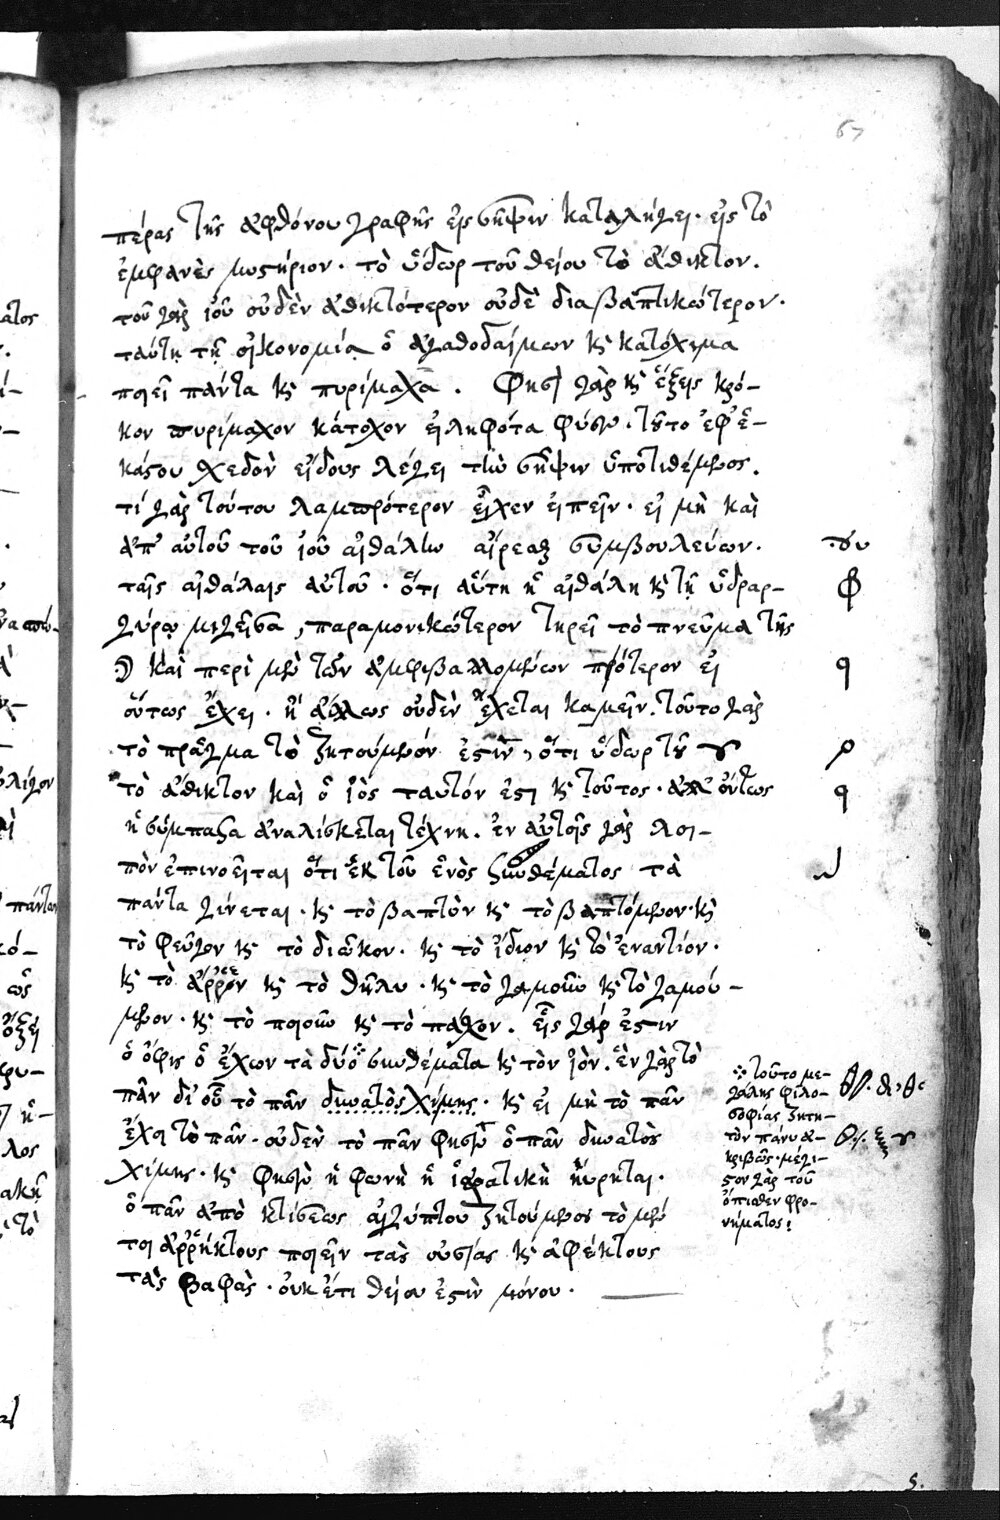 67
πέρας τῆς ἀφθόνου γραφῆς εἰς σῆψιν καταλήγει· εἰς τὸ
ἐμφανὲς μυστήριον· τὸ ὕδωρ τοῦ θείου τὸ ἄθικτον.
τοῦ γὰρ ἰοῦ οὐδὲν ἀθικτότερον οὐδὲ διαβαπτικώτερον·
ταύτῃ τῇ οἰκονομίᾳ ὁ ἀγαθοδαίμων κ̀ κατόχιμα
ποιεῖ πάντα κ̀ πυρίμαχα. Φησὶ γὰρ κ̀ ἕξεις κρό-
κον πυρίμαχον κάτοχον εἰληφότα φύσιν· τοῦτο ἐφ' ἑ-
κάστου σχεδὸν εἴδους λέγει τὴν σῆψιν ὑποτιθέμενος.
τί γὰρ τούτου λαμπρότερον εἶχεν εἰπεῖν· εἰ μὴ καὶ
ἀπ' αὐτοῦ τοῦ ἰοῦ αἰθάλην αἴρεσθαι συμβουλεύων.
ταῖς αἰθάλαις αὐτοῦ· ὅτι αὕτη ἡ αἰθάλη κ̀ τῇ ὑδραρ-
γύρῳ μιγεῖσα, παραμονικώτερον τηρεῖ τὸ πνεῦμα τῆς
☽ καὶ περὶ μὲν τῶν ἀμφιβαλλομένων πρότερον εἰ
οὕτως ἔχει· ἢ ἄλλως οὐδὲν ἔχεται καμεῖν. τοῦτο γὰρ
τὸ πρᾶγμα τὸ ζητούμενόν ἐστιν, ὅτι ὕδωρ τοῦ
τὸ ἄθικτον καὶ ὁ ἰὸς ταυτόν ἐστι κ̀ τοῦτος· ἀλλ' ὄντως
ἡ σύμπασα ἀναλίσκεται τέχνη. ἐν αὐτοῖς γὰρ λοι-
πὸν ἐπινοεῖται ὅτι ἐκ τοῦ ἑνὸς συνθέματος τὰ
πάντα γίνεται· κ̀ τὸ βαπτὸν κ̀ τὸ βαπτόμενον· κ̀
τὸ φεῦγον κ̀ τὸ διῶκον· κ̀ τὸ ἴδιον κ̀ τὸ ἐναντίον·
κ̀ τὸ ἄρρεν κ̀ τὸ θῆλυ· κ̀ τὸ γαμοῦν κ̀ τὸ γαμού-
μενον· κ̀ τὸ ποιοῦν κ̀ τὸ πάσχον. εἷς γάρ ἐστιν
ὁ ὄφις ὁ ἔχων τὰ δύο συνθέματα κ̀ τὸν ἰὸν· ἓν γὰρ τὸ
πᾶν δι' οὗ τὸ πᾶν δυνατὸς χίμης· κ̀ εἰ μὴ τὸ πᾶν
ἔχοι τὸ πᾶν· οὐδὲν τὸ πᾶν φησὶν ὁ πᾶν δυνατὸς
χίμης· κ̀ φησὶν ἡ φωνὴ ἡ ἱερατικὴ ηὕρηται·
ὁ πᾶν ἀπὸ κτίσεως αἰγύπτου ζητούμενον τὸ μέν
τοι ἀρρήκτους ποιεῖν τὰς οὐσίας κ̀ ἀφέκτους
τὰς βαφὰς· οὐκ ἔτι θείου ἐστὶν μόνου·
τοῦτο με-
γάλης φιλο-
σοφίας ζητη-
τὸν πάνυ ἀ-
κριβῶς· μέγι-
στον γὰρ τοῦ
ὄπισθεν φρο-
νήματος: